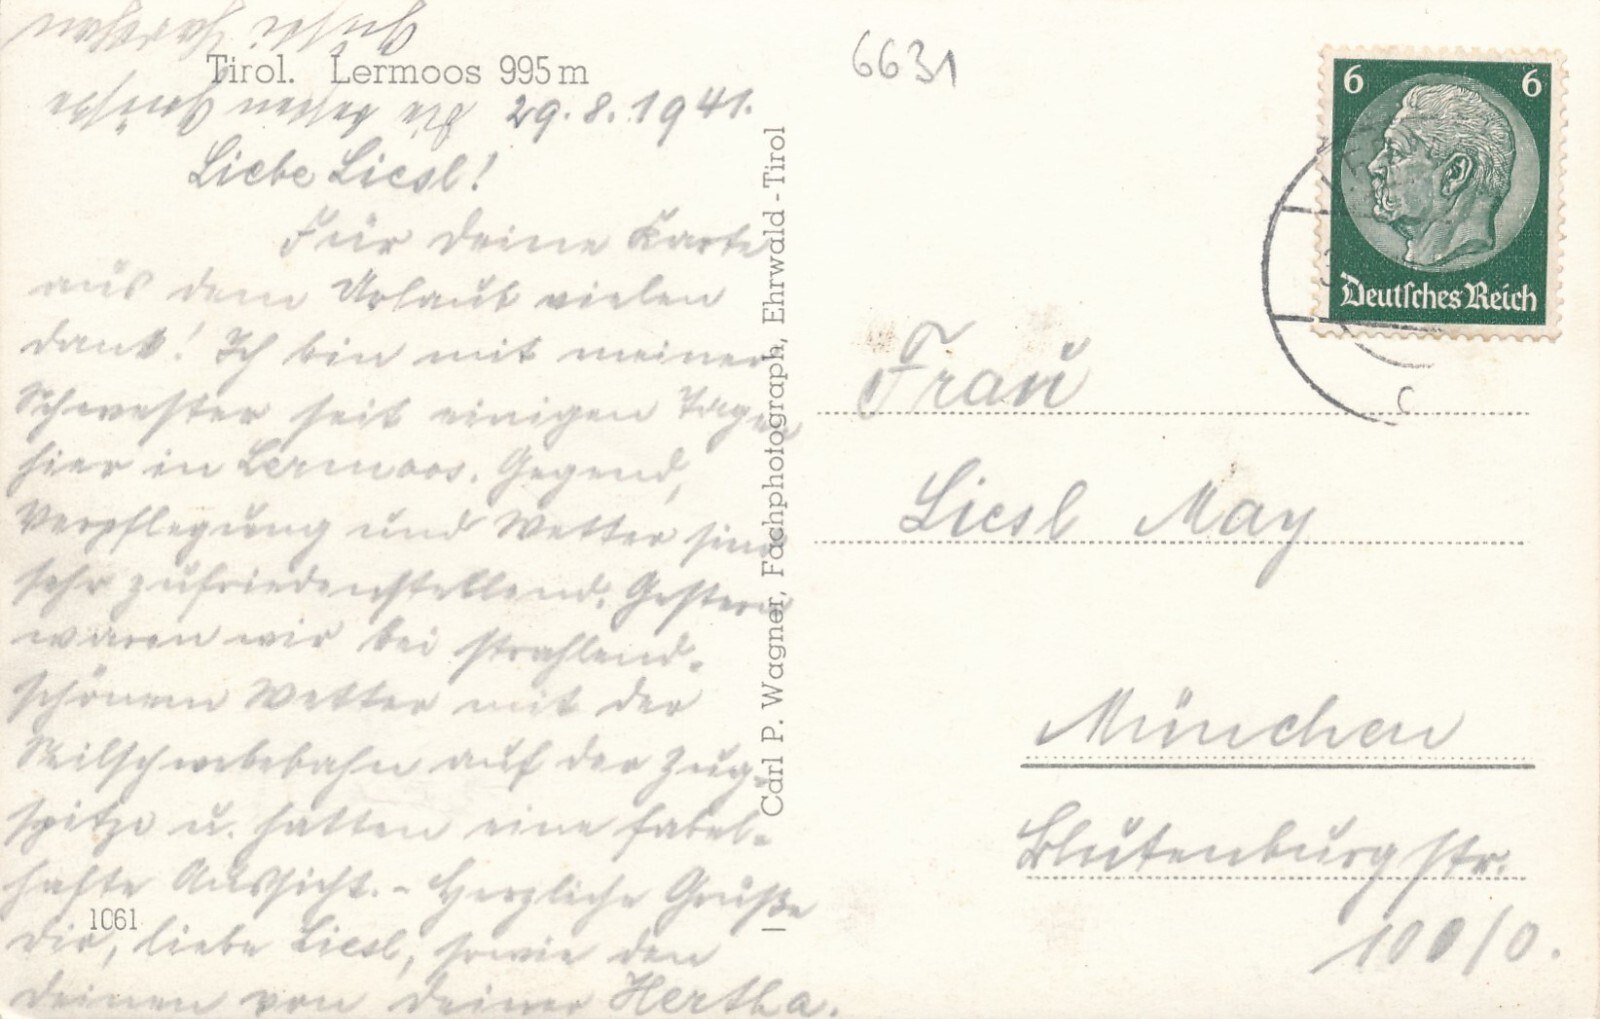 Tirol. Lermoos 995 m
29.8.1941.
Liebe Liesl!
Für deine Karte
aus dem Urlaub vielen
Dank! Ich bin mit meiner
Schwester seit einigen Tagen
hier in Lermoos. Gegend,
Verpflegung und Wetter sind
sehr zufriedenstellend. Gestern
waren wir bei strahlend-
schönem Wetter mit der
Seilschwebebahn auf der Zug-
spitze u. hatten eine fabel-
hafte Aussicht. - Herzliche Grüße
Dir, liebe Liesl, sowie den
deinen von deiner Hertha.
1061
Carl P. Wagner, Fachphotograph, Ehrwald - Tirol
6631
6 6
Deutsches Reich
Frau
Liesl May
München
Blutenburgstr.
100/0.